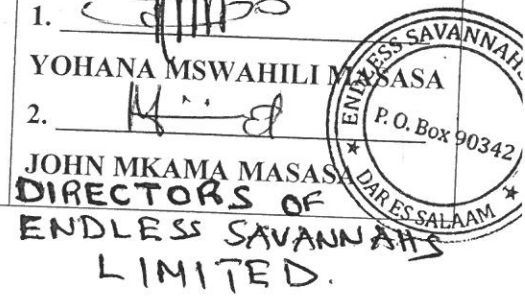 1.
YOHANA MSWAHILI MASASA
2.
JOHN MKAMA MASASA
DIRECTORS OF
ENDLESS SAVANNAHS
LIMITED.
ENDLESS SAVANNAHS
P. O. Box 90342
★ DAR ES SALAAM ★